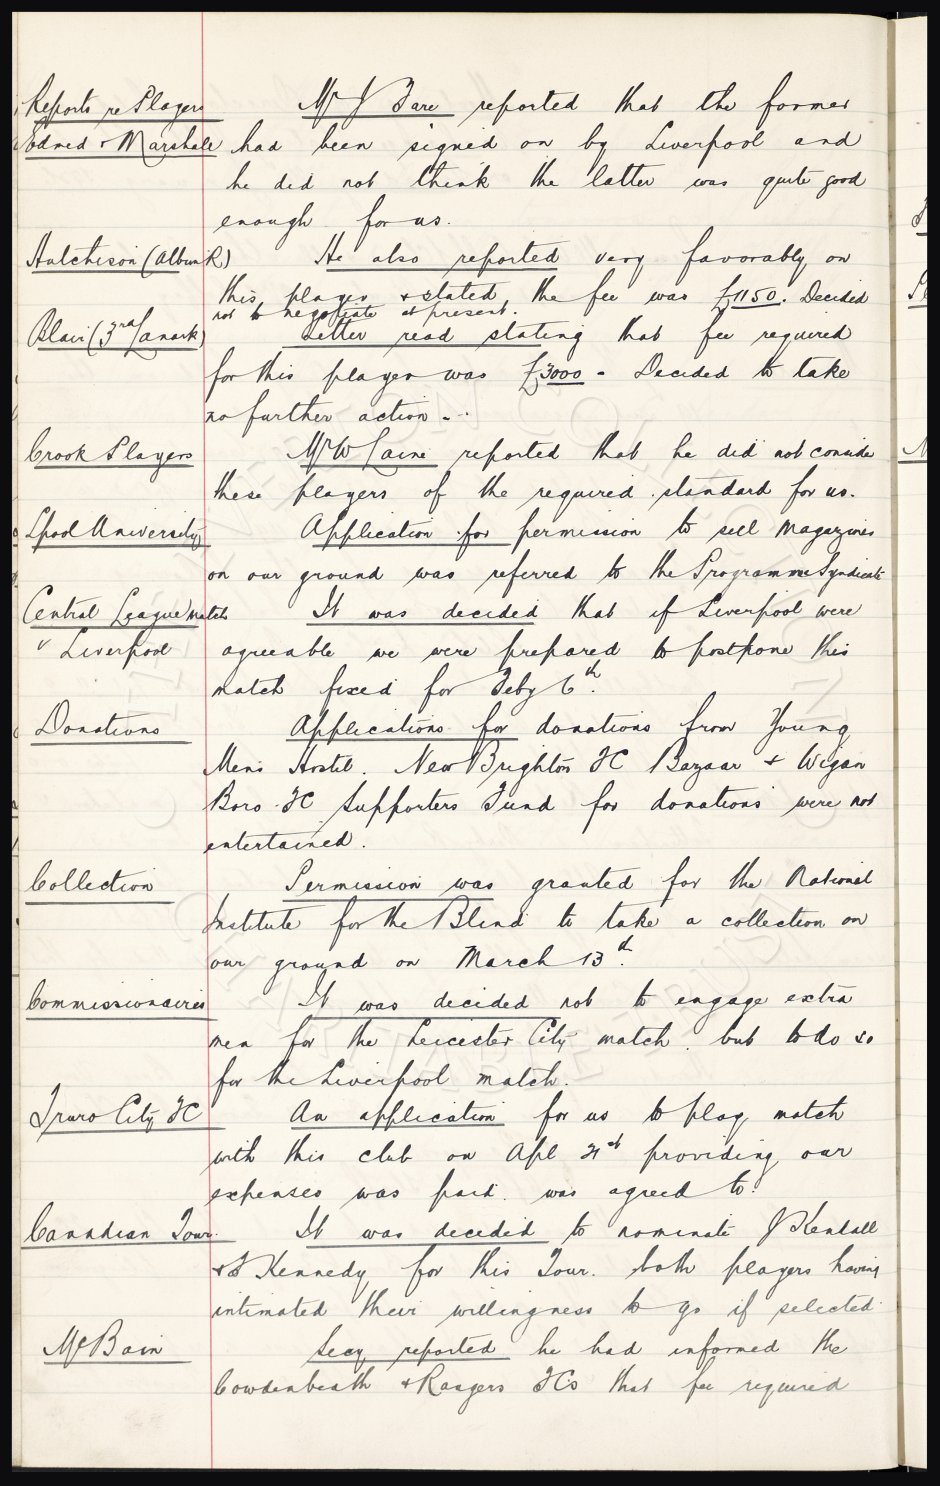 Reports re Players Mr J Bare reported that the former
& Marshall had been signed on by Liverpool and
he did not think the latter was quite good
enough for us.
Hutchison (Albion R) He also reported very favorably on
this player & stated the fee was £1150. Decided
not to negotiate at present.
Blair (3rd Lanark) Letter read stating that fee required
for this player was £3000 - Decided to take
no further action -.
Crook Players Mr W Caine reported that he did not consider
these players of the required standard for us.
Lpool University Application for permission to sell magazines
on our ground was referred to the Programme Syndicate
Central League match It was decided that if Liverpool were
" Liverpool agreeable we were prepared to postpone this
match fixed for Feby 6th.
Donations Applications for donations from Young
Mens Hostel. New Brighton FC Bazaar & Wigan
Boro FC Supporters Fund for donations were not
entertained.
Collection Permission was granted for the National
Institute for the Blind to take a collection on
our ground on March 13th.
Commissionaires It was decided not to engage extra
men for the Leicester City match but to do so
for the Liverpool match.
Truro City FC An application for us to play match
with this club on Apl 21st providing our
expenses was paid. was agreed to.
Canadian Tour. It was decided to nominate J Kendall
& F Kennedy for this Tour. both players having
intimated their willingness to go if selected.
McBain Secy reported he had informed the
Cowdenbeath & Rangers FCs that fee required